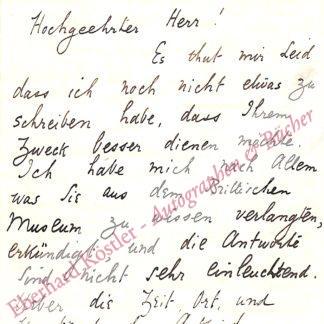 Hochgeehrter Herr!
Es thut mir Leid
dass ich noch nicht etwas zu
schreiben habe, dass Ihrem
Zweck besser dienen möchte.
Ich habe mich nach Allem
was Sie aus dem Brittischen
Museum zu wissen verlangten,
erkündigt und die Antworte
sind nicht sehr einleuchtend.
Ueber die Zeit, Ort, und
Eberhard Köstler - Autographen & Bücher